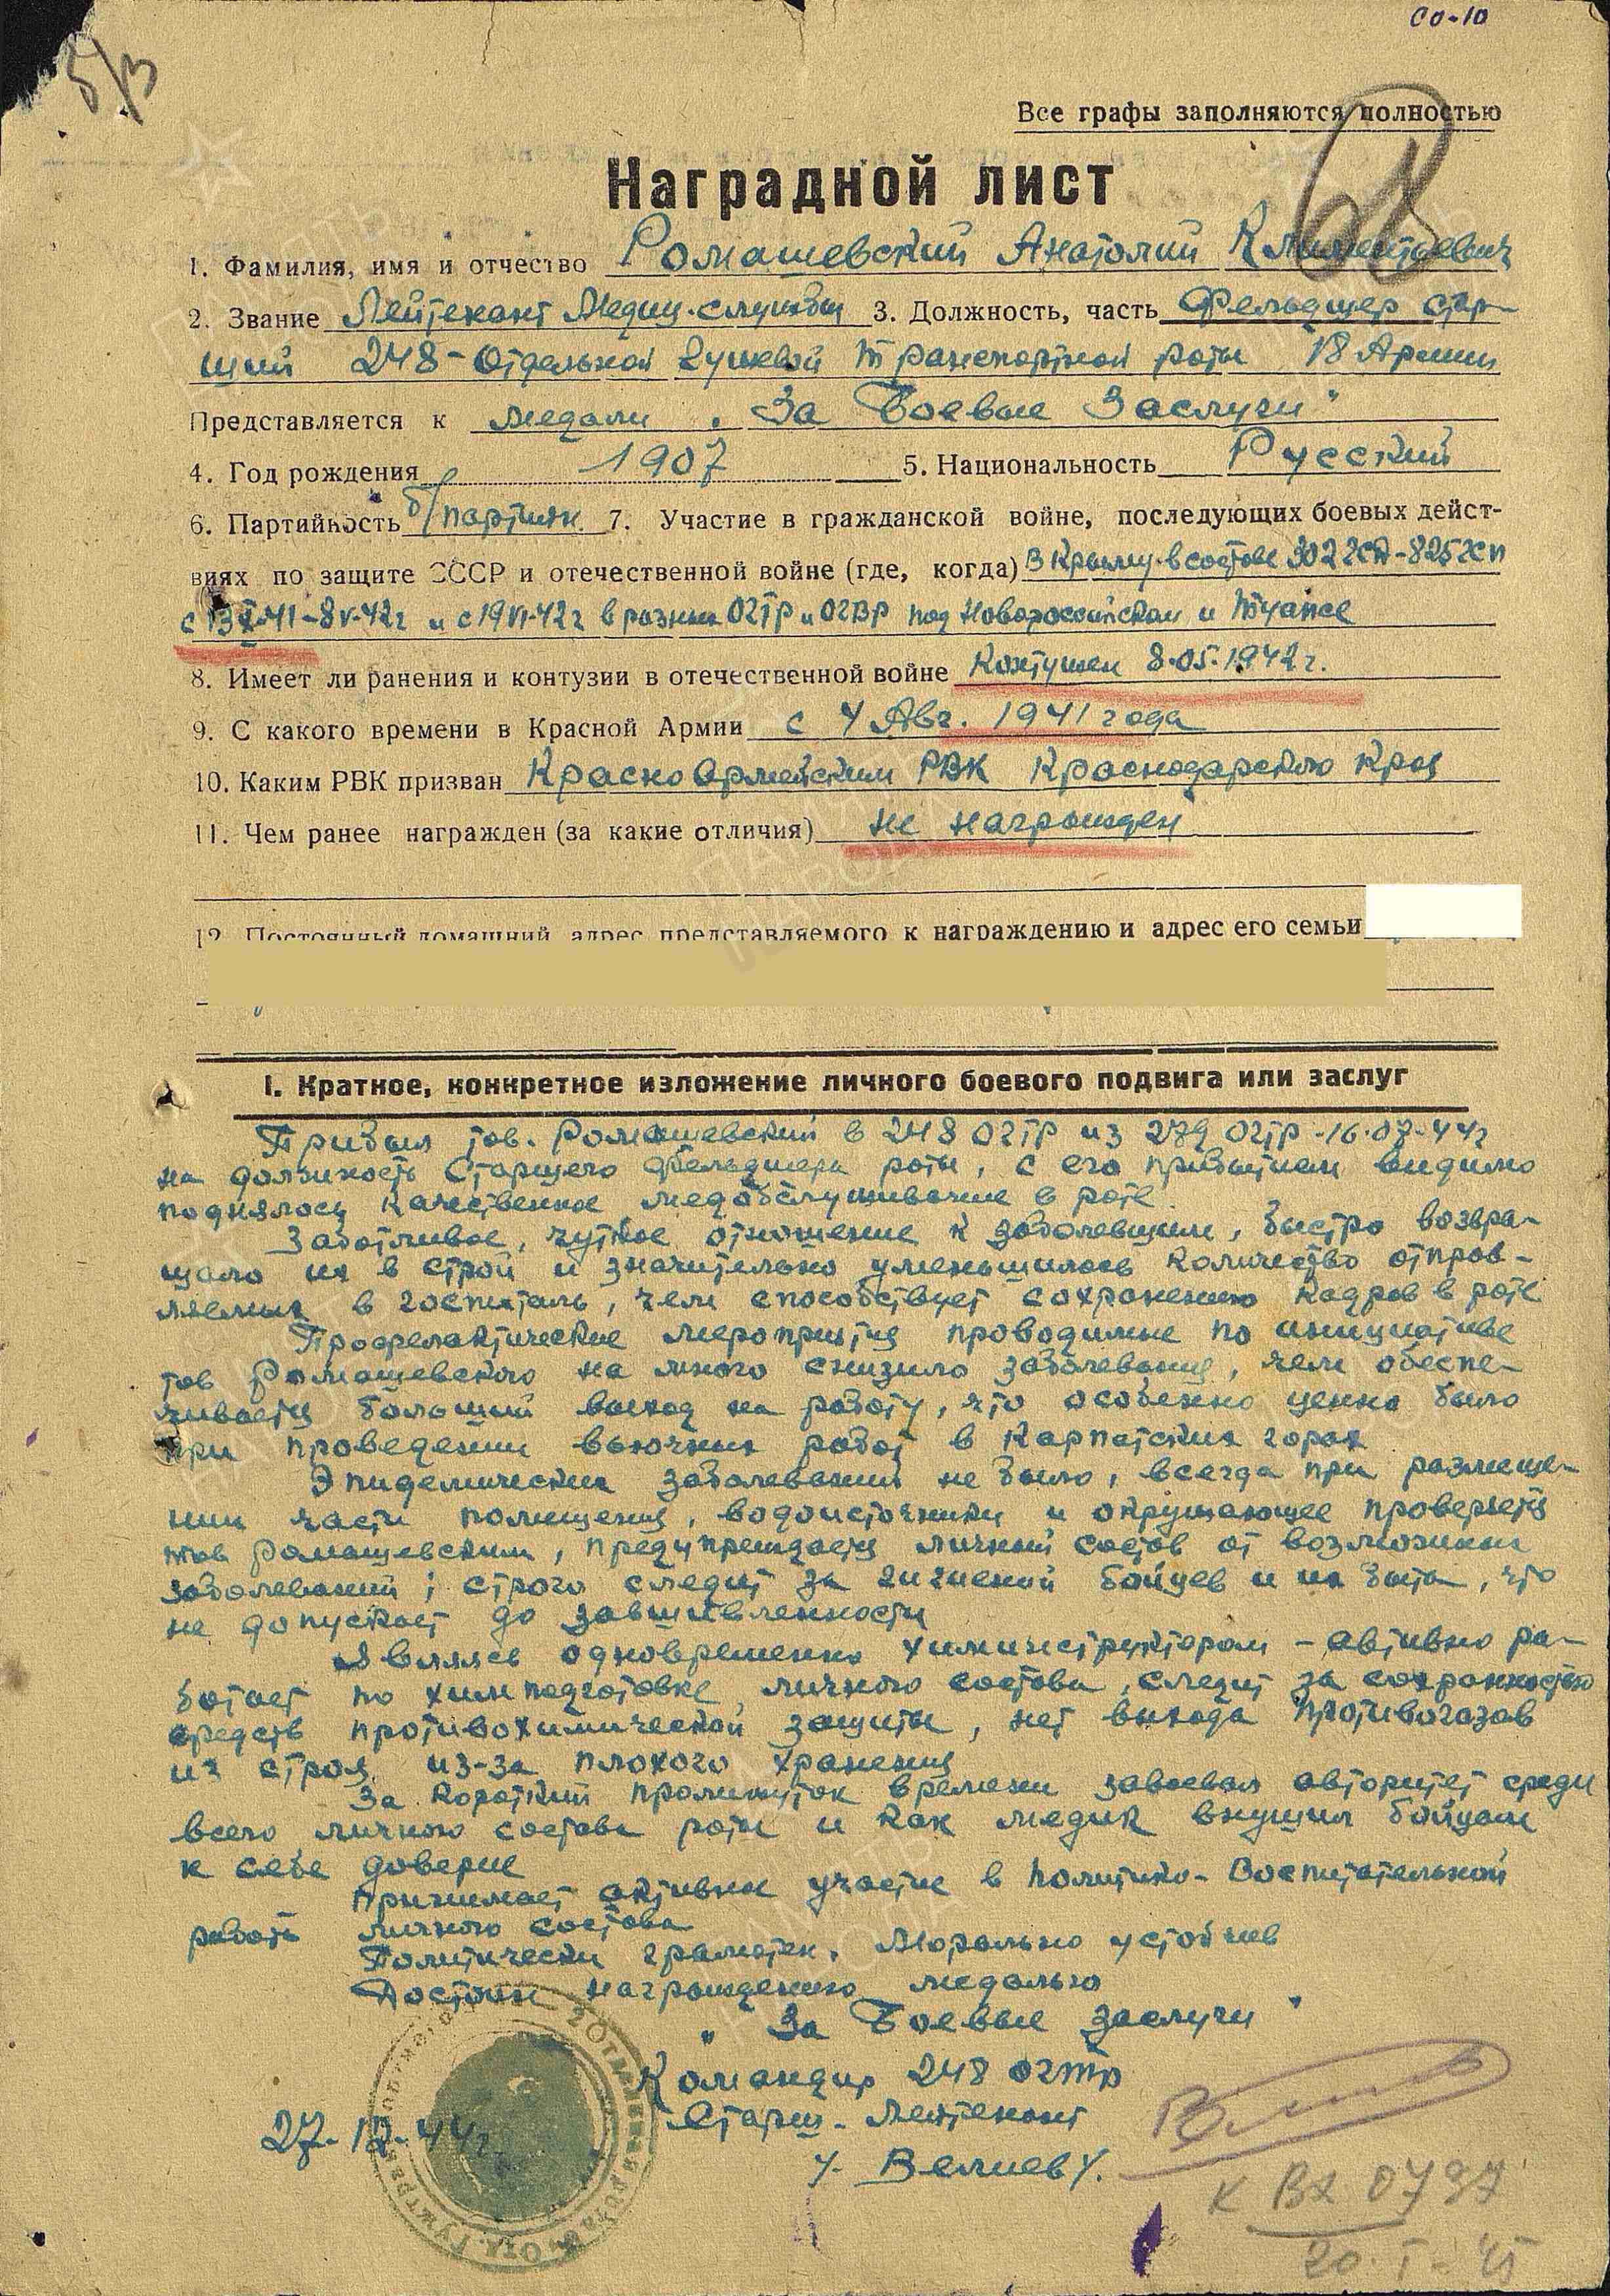 СО-10
б/з
Все графы заполняются полностью
Наградной лист
1. Фамилия, имя и отчество Ромашевский Анатолий Климентьевич
2. Звание Лейтенант Медиц. службы 3. Должность, часть Фельдшер стар-
ший 248-Отдельной Гужевой Транспортной роты 18 Армии
Представляется к медали „За Боевые Заслуги"
4. Год рождения 1907 5. Национальность Русский
6. Партийность б/партийн. 7. Участие в гражданской войне, последующих боевых дейст-
виях по защите СССР и отечественной войне (где, когда) В Крыму в составе 302 ГСД-825 ГСП
с 13 X-41-8 V-42г и с 19 VI-42г в разных ОГТР и ОГВР под Новороссийском и Туапсе
8. Имеет ли ранения и контузии в отечественной войне Контужен 8.05.1942 г.
9. С какого времени в Красной Армии с 4 Авг. 1941 года
10. Каким РВК призван Красноармейским РВК Краснодарского Края
11. Чем ранее награжден (за какие отличия) не награжден
12. Постоянный домашний адрес представляемого к награждению и адрес его семьи
I. Краткое, конкретное изложение личного боевого подвига или заслуг
Прибыл тов. Ромашевский в 248 ОГТР из 279 ОГТР -16.07.44г
на должность Старшего фельдшера роты, с его прибытием видимо
поднялось качественное медобслуживание в роте.
Заботливое, чуткое отношение к заболевшим, быстро возвра-
щало их в строй и значительно уменьшилось количество отправ-
ляемых в госпиталь, чем способствует сохранению кадров в роте
Профилактические мероприятия проводимые по инициативе
тов Ромашевского на много снизило заболевание, чем обеспе-
чивается больший выход на работу, что особенно ценно было
при проведении вьючных работ в Карпатских горах
Эпидемических заболеваний не было, всегда при размеще-
нии части помещения, водоисточники и окружающее проверяется
тов Ромашевским, предупреждается личный состав от возможных
заболеваний; строго следит за гигиеной бойцов и их быта, что
не допускает до завшивленности
Являясь одновременно химинструктором - активно ра-
ботает по химподготовке личного состава, следит за сохранностью
средств противохимической защиты, нет выхода противогазов
из строя из-за плохого хранения
За короткий промежуток времени завоевал авторитет среди
всего личного состава роты и как медик внушил бойцам
к себе доверие
Принимает активное участие в политико-Воспитательной
работе личного состава
Политически грамотен. Морально устойчив
Достоин награждению медалью
„За Боевые заслуги"
Командир 248 ОГТР
Старш. лейтенант
27-12-44г.
/. Велиев /.
к Вх 0797
20.I-45